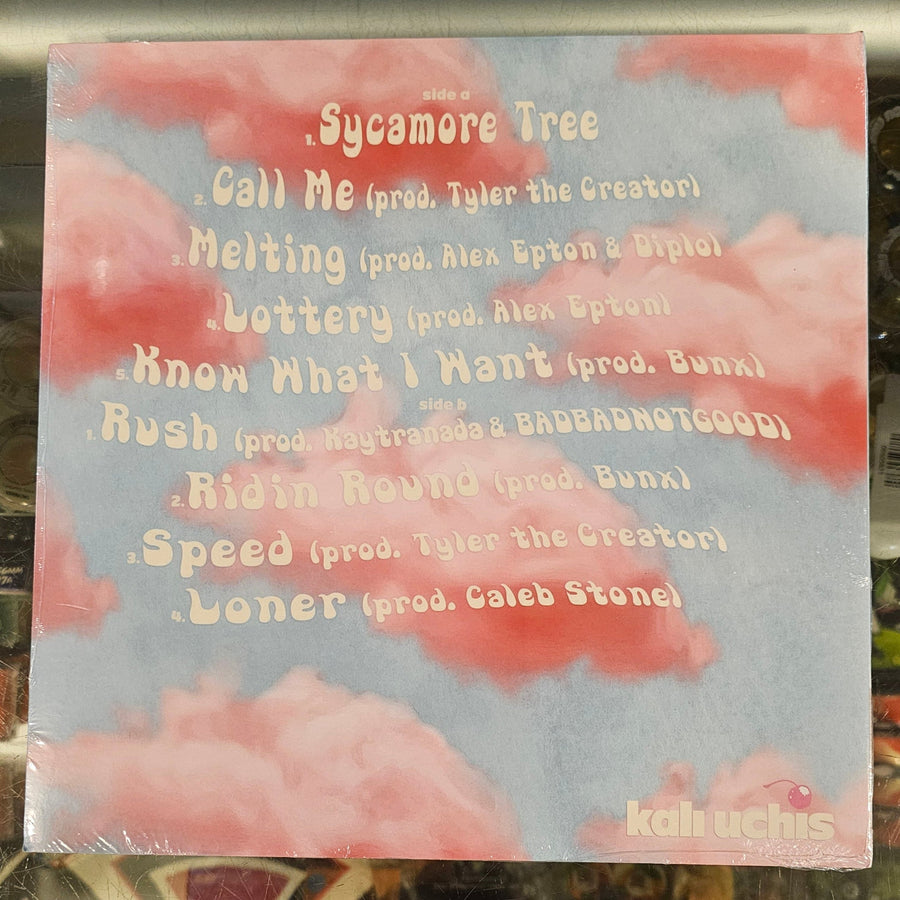 side a
1. Sycamore Tree
2. Call Me (prod. Tyler the Creator)
3. Melting (prod. Alex Epton & Diplo)
4. Lottery (prod. Alex Epton)
5. Know What I Want (prod. Bunx)
side b
1. Rush (prod. Kaytranada & BADBADNOTGOOD)
2. Ridin Round (prod. Bunx)
3. Speed (prod. Tyler the Creator)
4. Loner (prod. Caleb Stone)
kali uchis